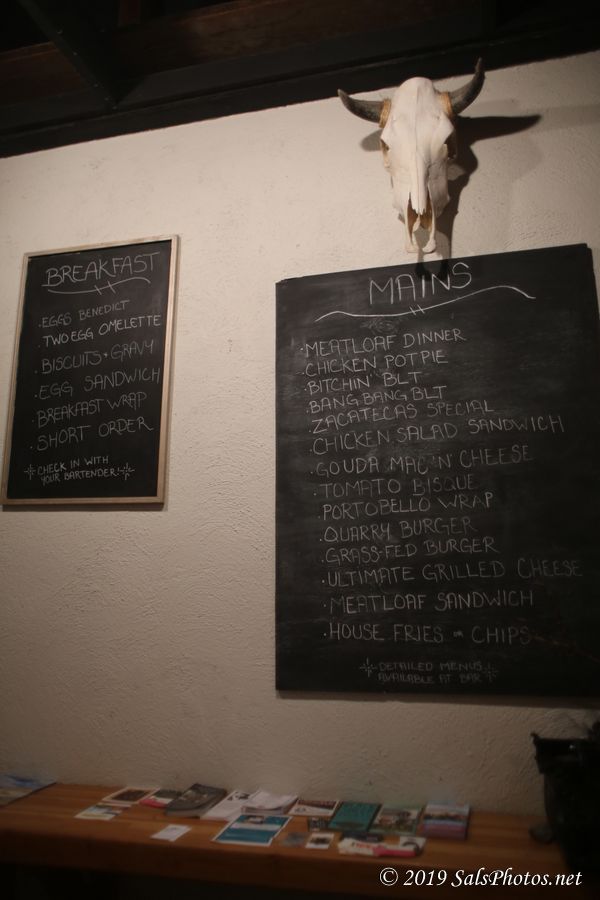 BREAKFAST
· EGGS BENEDICT
· TWO EGG OMELETTE
· BISCUITS + GRAVY
· EGG SANDWICH
· BREAKFAST WRAP
· SHORT ORDER
CHECK IN WITH
YOUR BARTENDER!
MAINS
· MEATLOAF DINNER
· CHICKEN POT PIE
· BITCHIN' BLT
· BANG BANG BLT
· ZACATECAS SPECIAL
· CHICKEN SALAD SANDWICH
· GOUDA MAC 'N' CHEESE
· TOMATO BISQUE
· PORTOBELLO WRAP
· QUARRY BURGER
· GRASS-FED BURGER
· ULTIMATE GRILLED CHEESE
· MEATLOAF SANDWICH
· HOUSE FRIES OR CHIPS
DETAILED MENUS
AVAILABLE AT BAR
© 2019 SalsPhotos.net